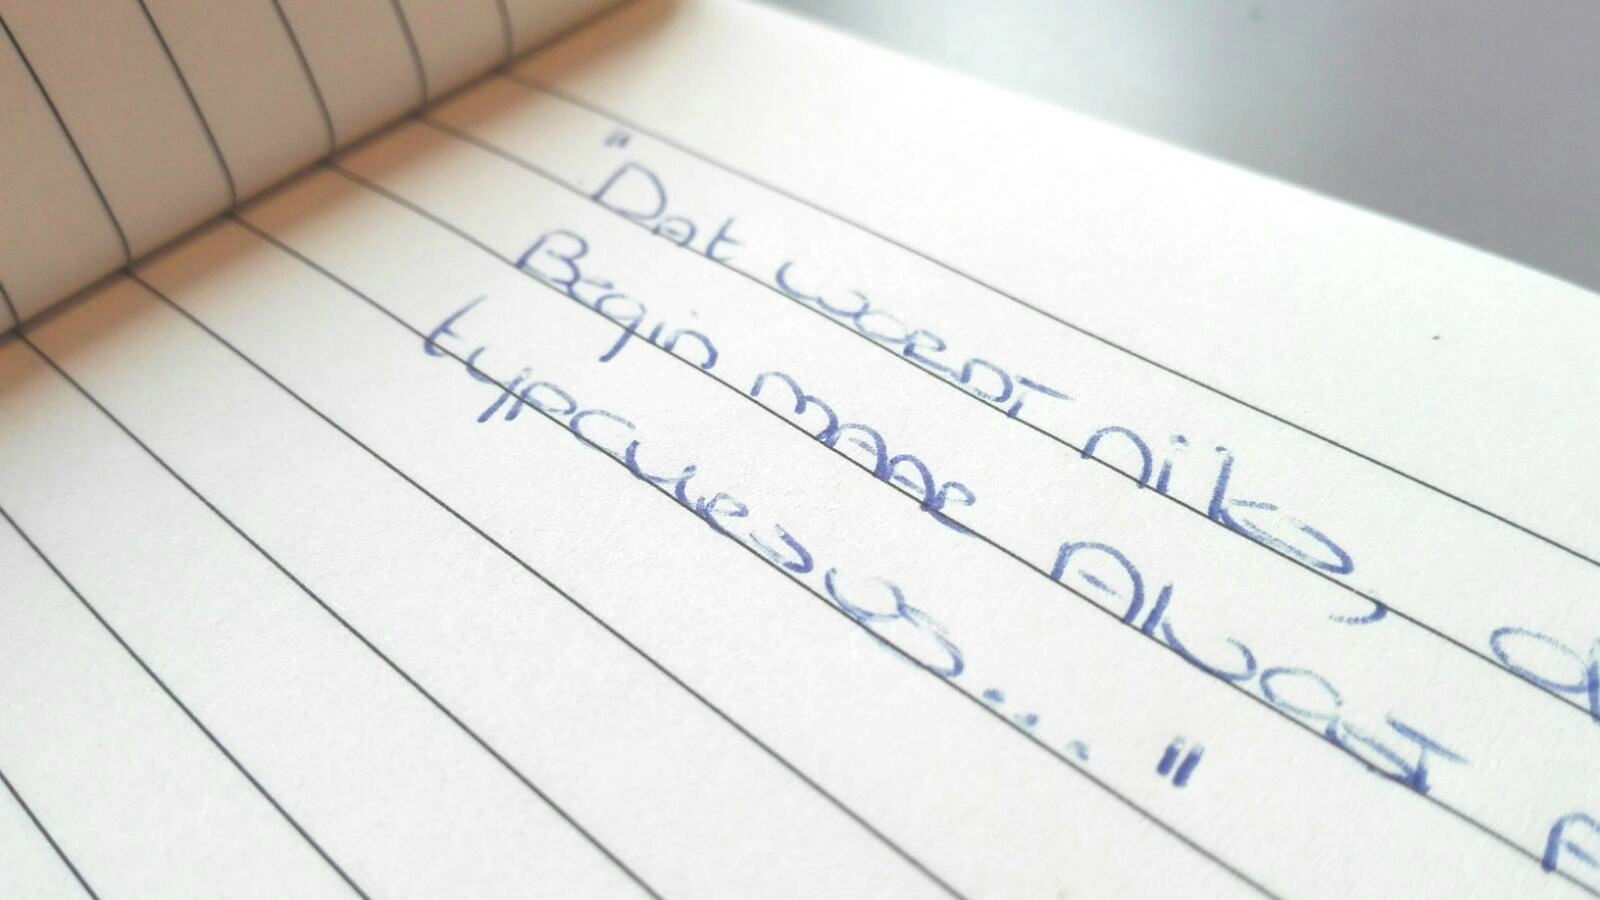 "Dat weent niks, d
Begin maar Alvast
typcures....."